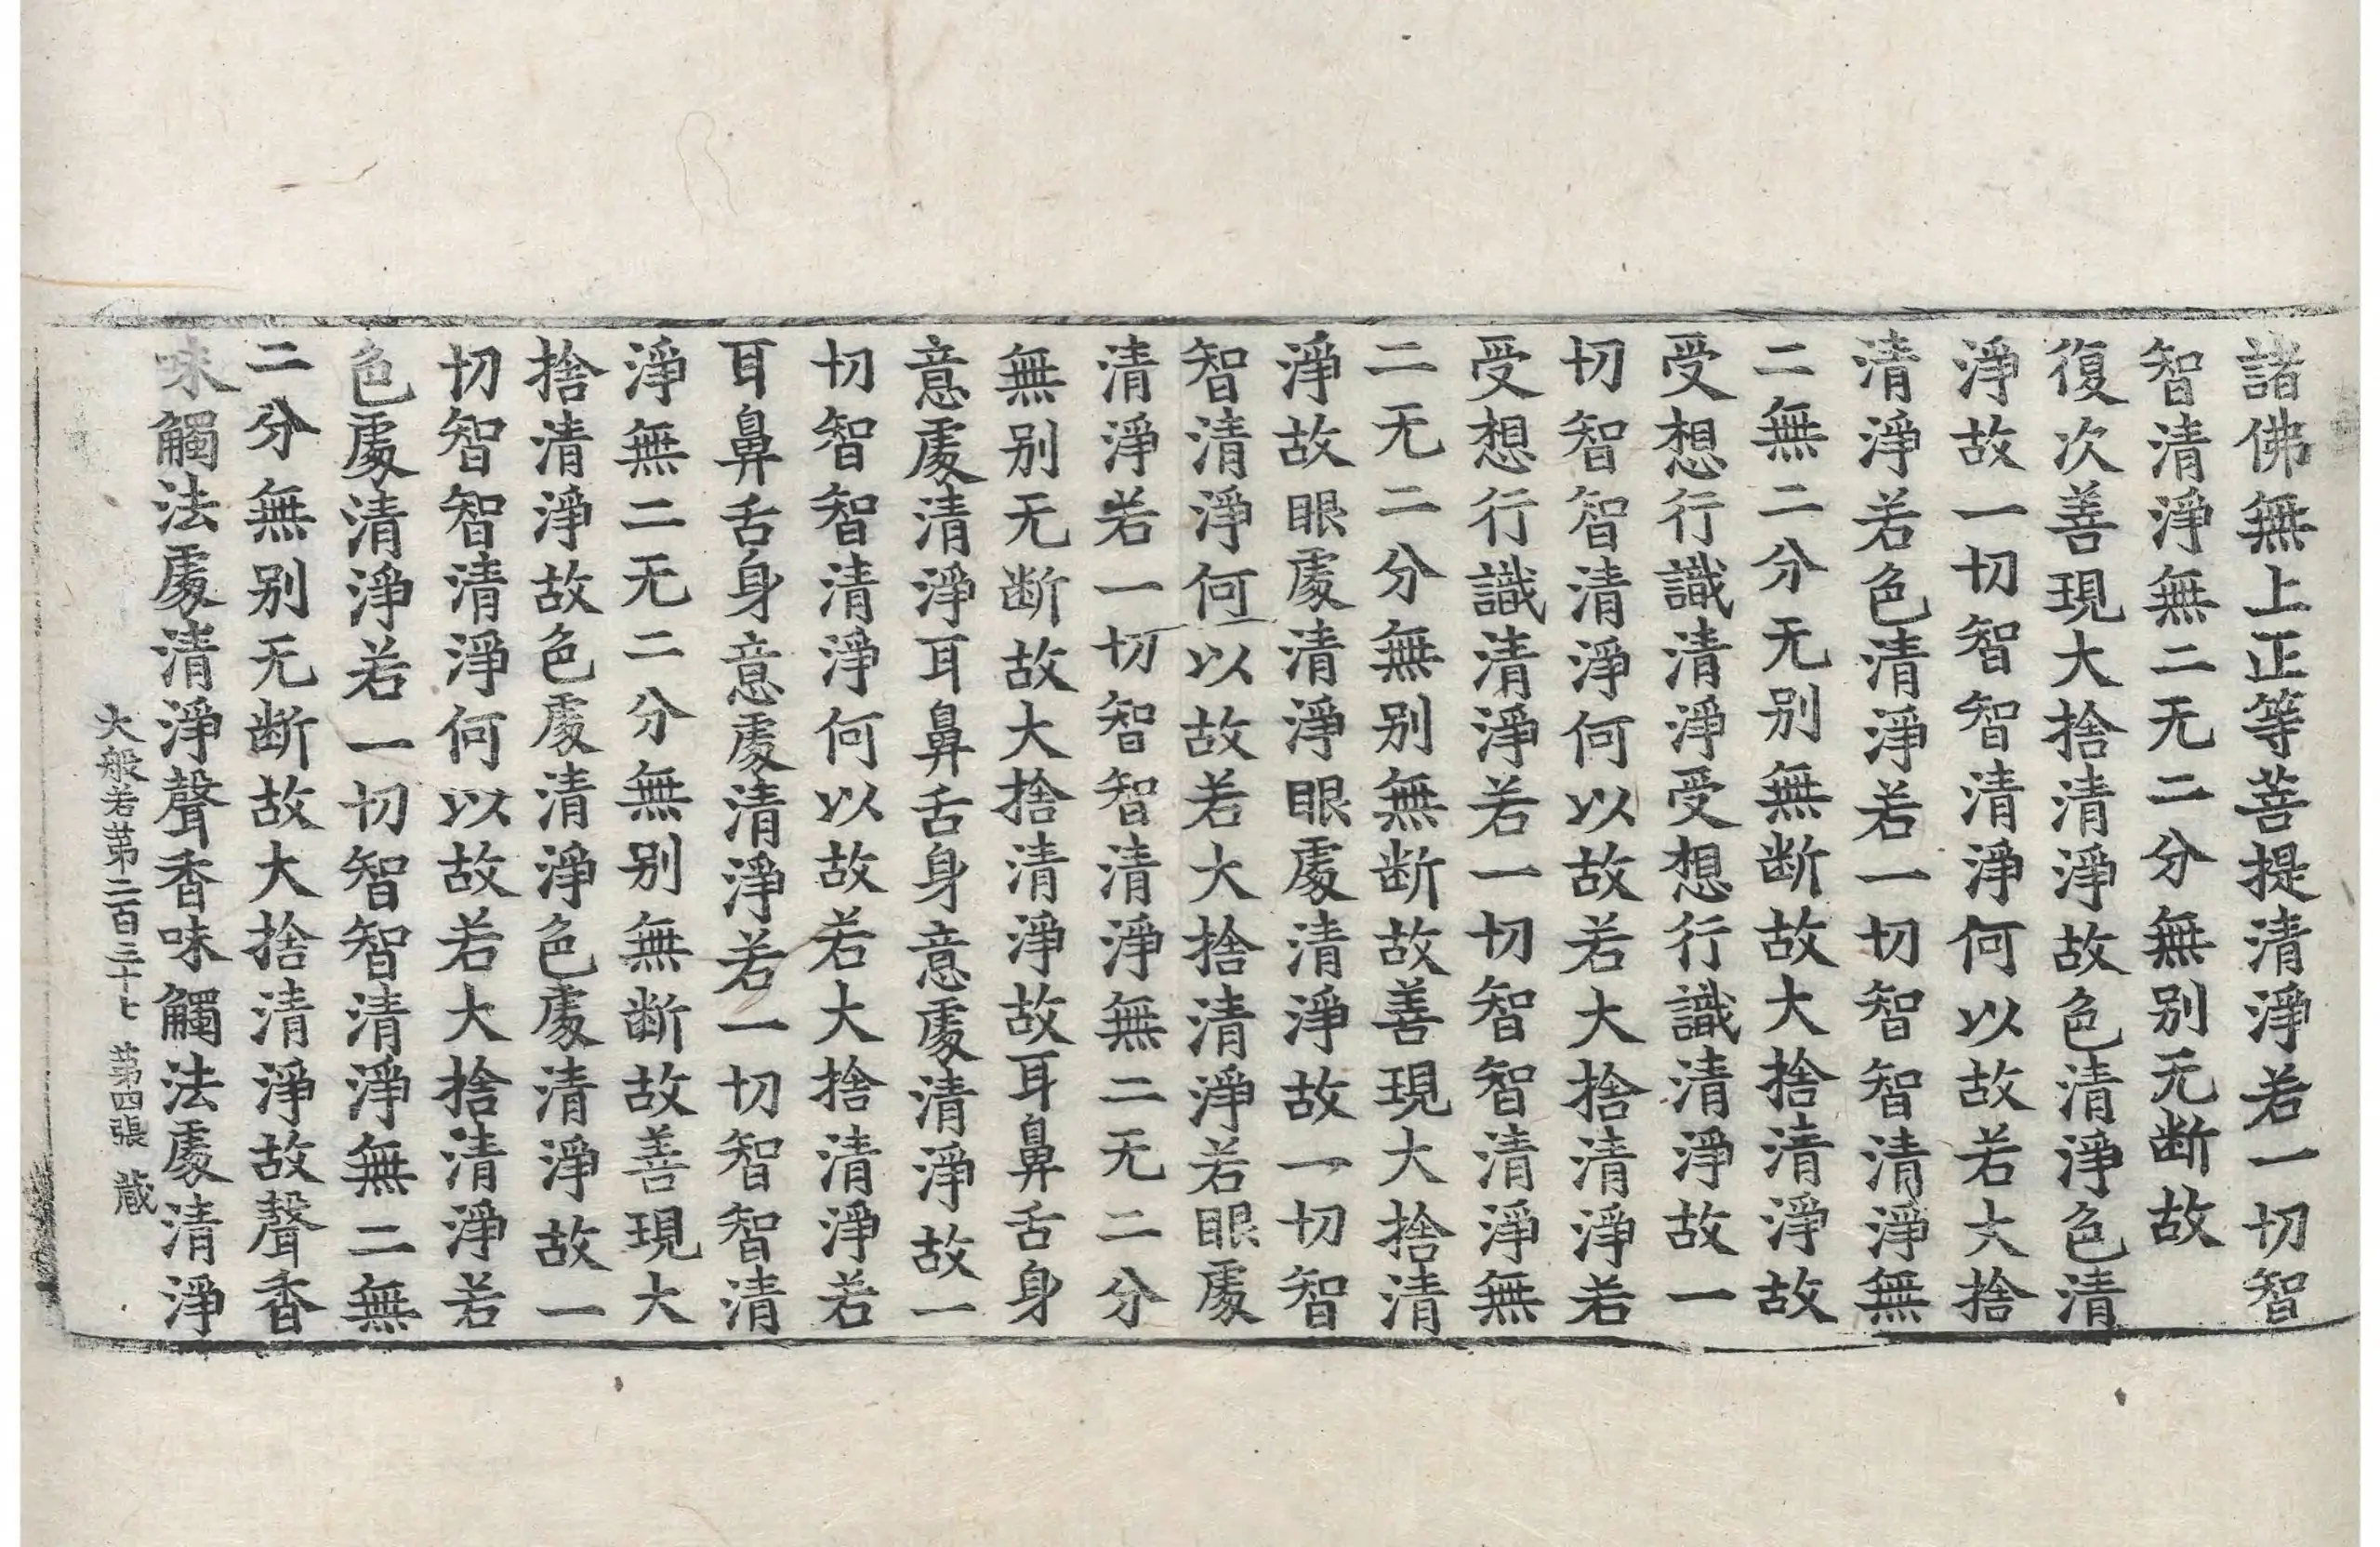 諸佛無上正等菩提清淨若一切智
智清淨無二无二分無别无断故
復次善現大捨清淨故色清淨色清
淨故一切智智清淨何以故若大捨
清淨若色清淨若一切智智清淨無
二無二分无别無断故大捨清淨故
受想行識清淨受想行識清淨故一
切智智清淨何以故若大捨清淨若
受想行識清淨若一切智智清淨無
二无二分無别無断故善現大捨清
淨故眼處清淨眼處清淨故一切智
智清淨何以故若大捨清淨若眼處
清淨若一切智智清淨無二无二分
無别无断故大捨清淨故耳鼻舌身
意處清淨耳鼻舌身意處清淨故一
切智智清淨何以故若大捨清淨若
耳鼻舌身意處清淨若一切智智清
淨無二无二分無别無断故善現大
捨清淨故色處清淨色處清淨故一
切智智清淨何以故若大捨清淨若
色處清淨若一切智智清淨無二無
二分無别无断故大捨清淨故聲香
味觸法處清淨聲香味觸法處清淨
大般若苐二百三十七 苐四張 蔵